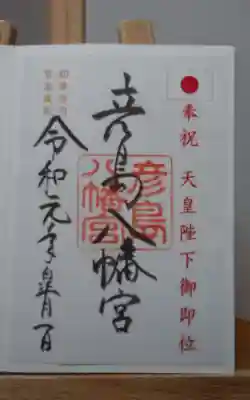 奉祝 天皇陛下御即位
彦島八幡宮
彦島
八幡宮
令和元年皐月一日